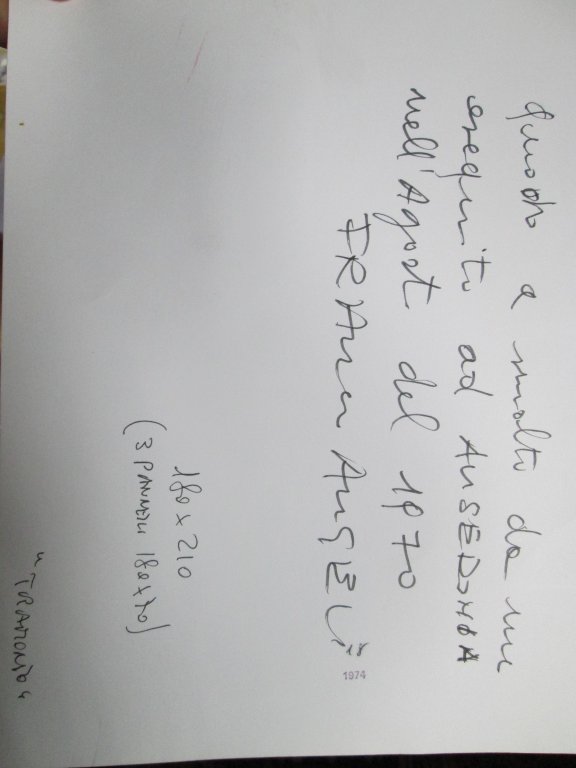 quadro a smalto da me
eseguito ad ANSEDONIA
nell'Agosto del 1970
FRANCO ANGELI
1974
180 x 210
(3 PANNELLI 180x70)
"TRAMONTO"